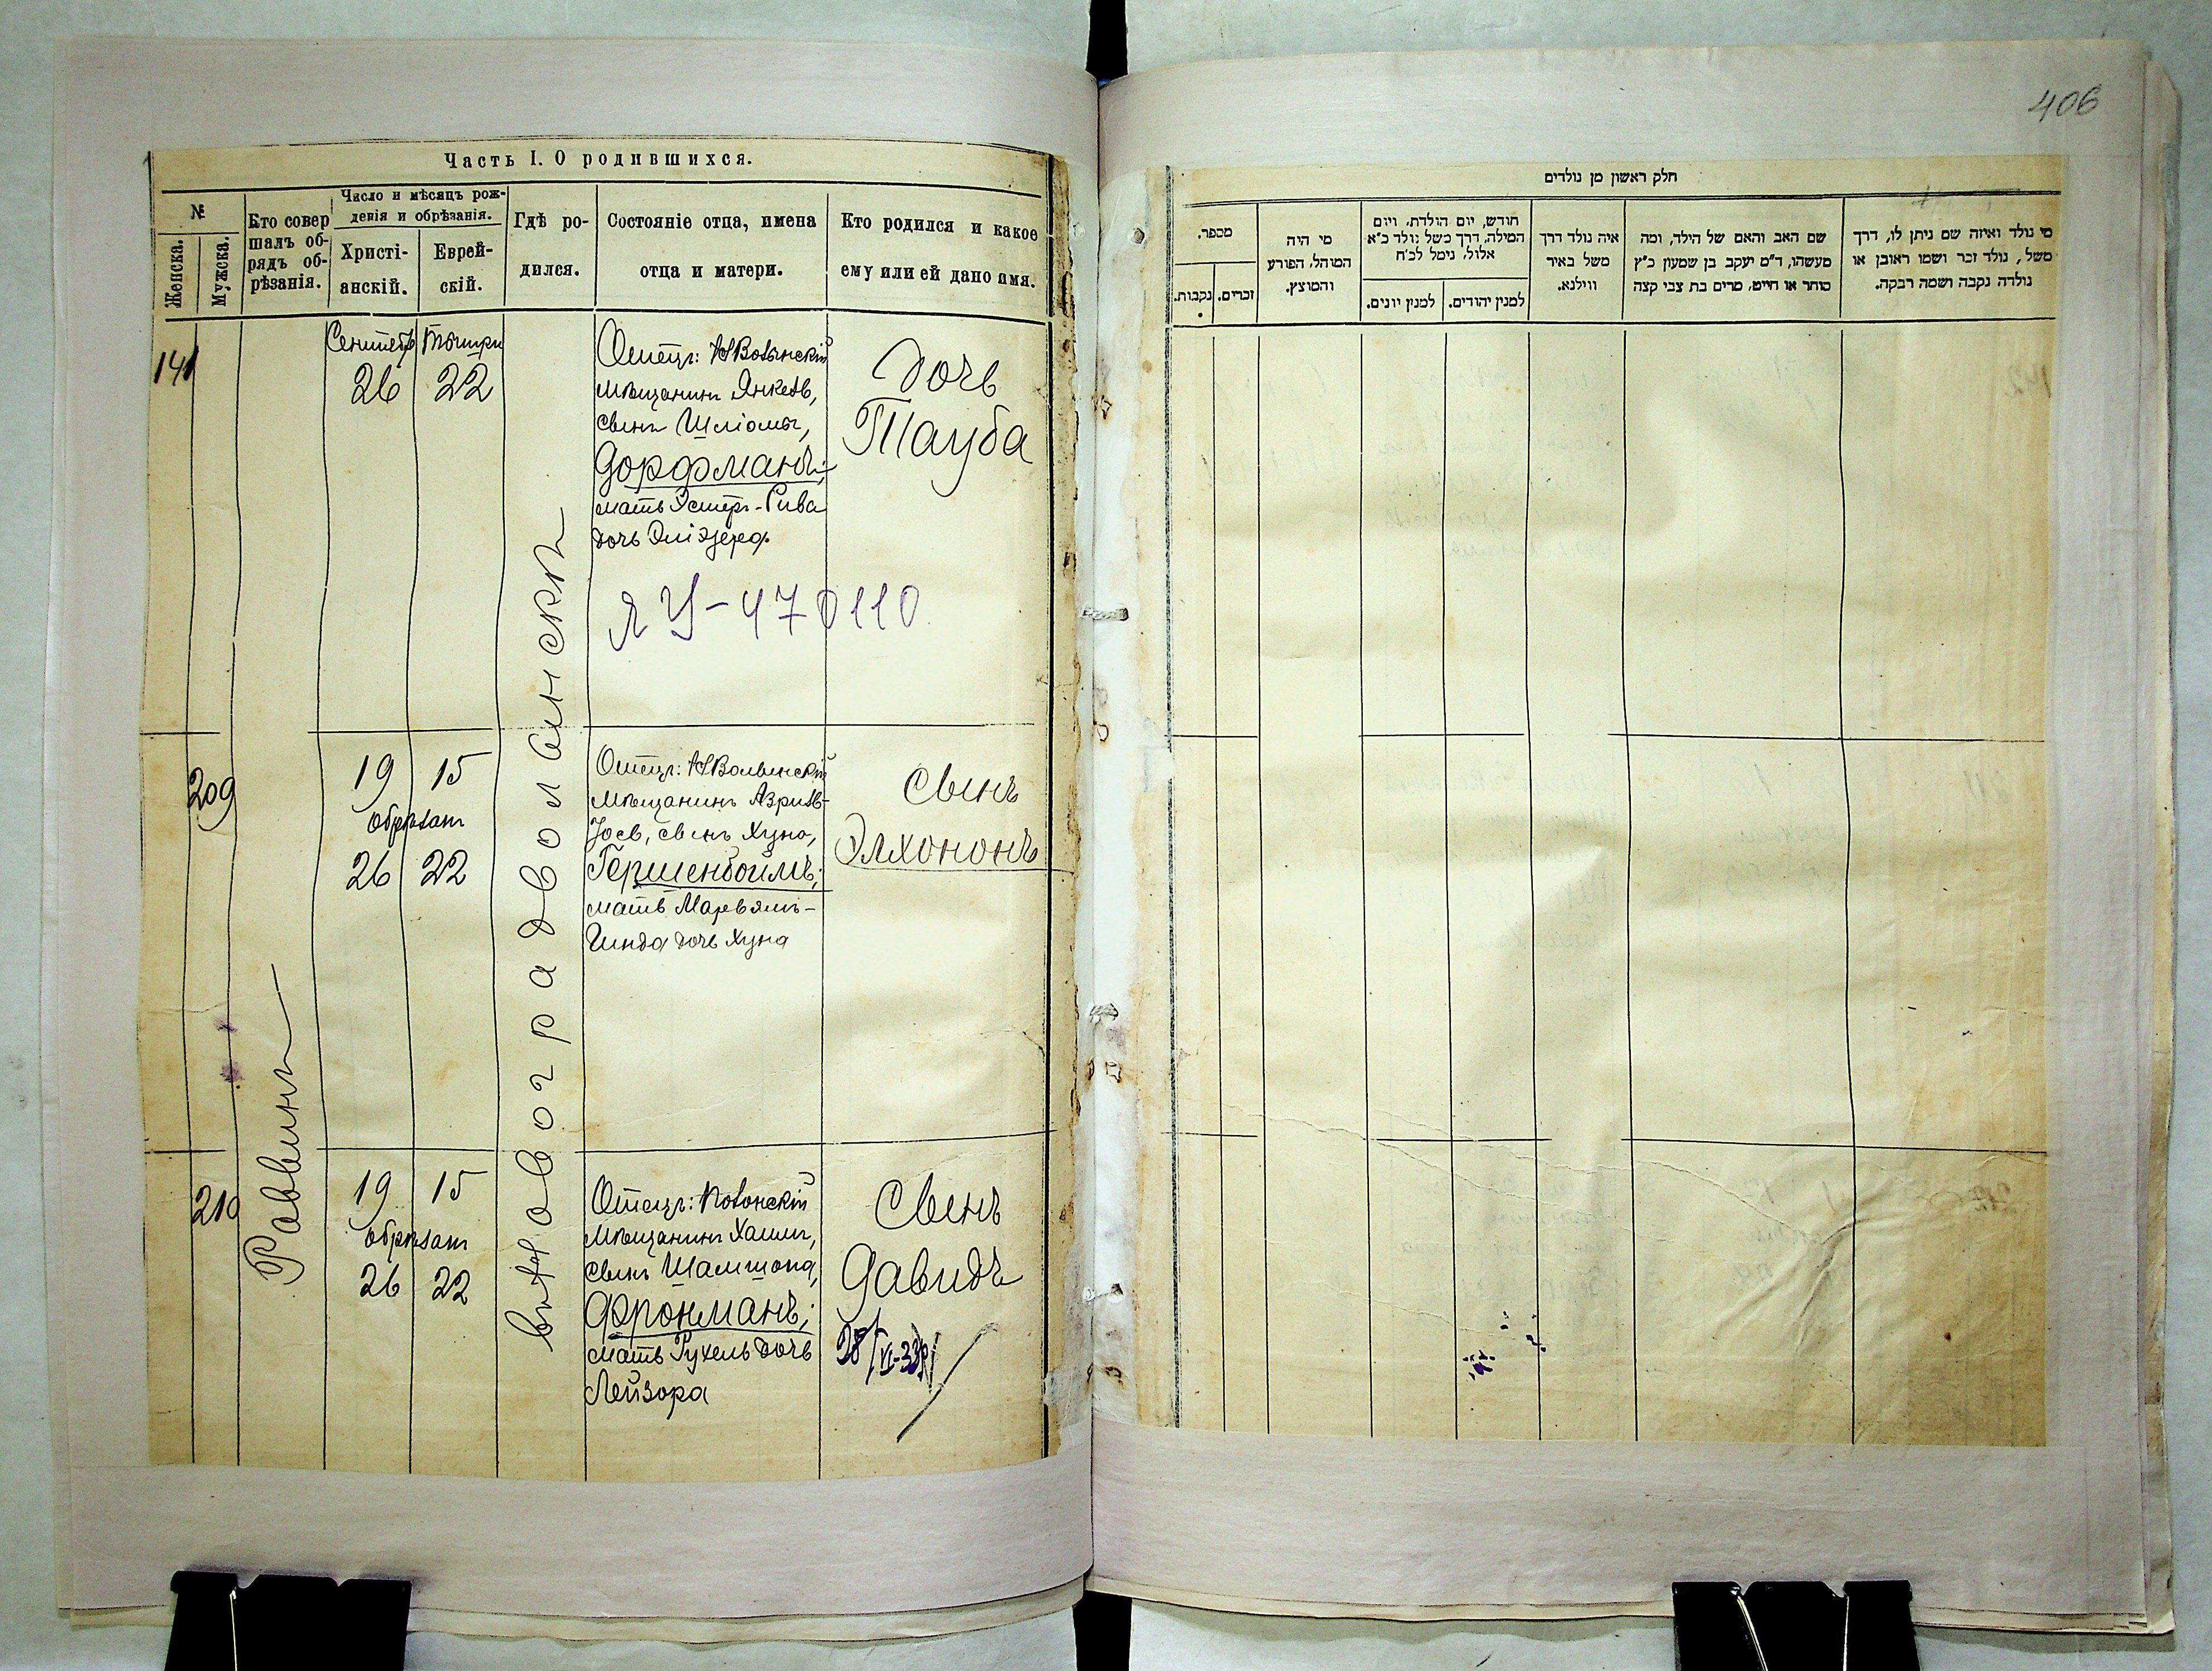 406
Часть I. О родившихся.
№
Женска.
Мужска.
Кто совер
шалъ об-
рядъ об-
рѣзанія.
Число и мѣсяцъ рож-
денія и обрѣзанія.
Христі-
анскій.
Еврей-
скій.
Гдѣ ро-
дился.
Состояніе отца, имена
отца и матери.
Кто родился и какое
ему или ей дано имя.
141
Сентябр Тышри
26 22
Отецъ: НВолынскій
мѣщанинъ Янкель,
сынъ Шліомы,
Дорфманъ;
мать Эстеръ-Рива
дочь Эліэзера
Дочь
Тауба
ЯУ-470110
209
19 15
обрѣзанъ
26 22
Отецъ: НВолынскій
мѣщанинъ Азриль-
Іосъ, сынъ Хуна,
Гершенбоймъ;
мать Марьямъ-
Гинда дочь Хуна
Сынъ
Элхононъ
210
19 15
обрѣзанъ
26 22
Отецъ:
мѣщанинъ Хаимъ,
сынъ Шамшона,
Фронманъ;
мать Рухель дочь
Лейзора
Сынъ
Давидъ
Раввинъ
Новоградволынскѣ
חלק ראשון מן נולדים
מי נולד ואיזה שם ניתן לו, דרך
משל, נולד זכר ושמו ראובן או
נולדה נקבה ושמה רבקה.
שם האב והאם של הילד, ומה
מעשהו, ד״מ יעקב בן שמעון כ״ץ
סוחר או חייט, מרים בת צבי קצה
איה נולד דרך
משל באיר
ווילנא.
חודש, יום הולדת, ויום
המילה, דרך משל נולד כ״א
אלול, נימל לכ״ח
למנין יהודים.
למנין יונים.
מי היה
המוהל, הפורע
והמוצץ.
מספר.
זכרים.
נקבות.